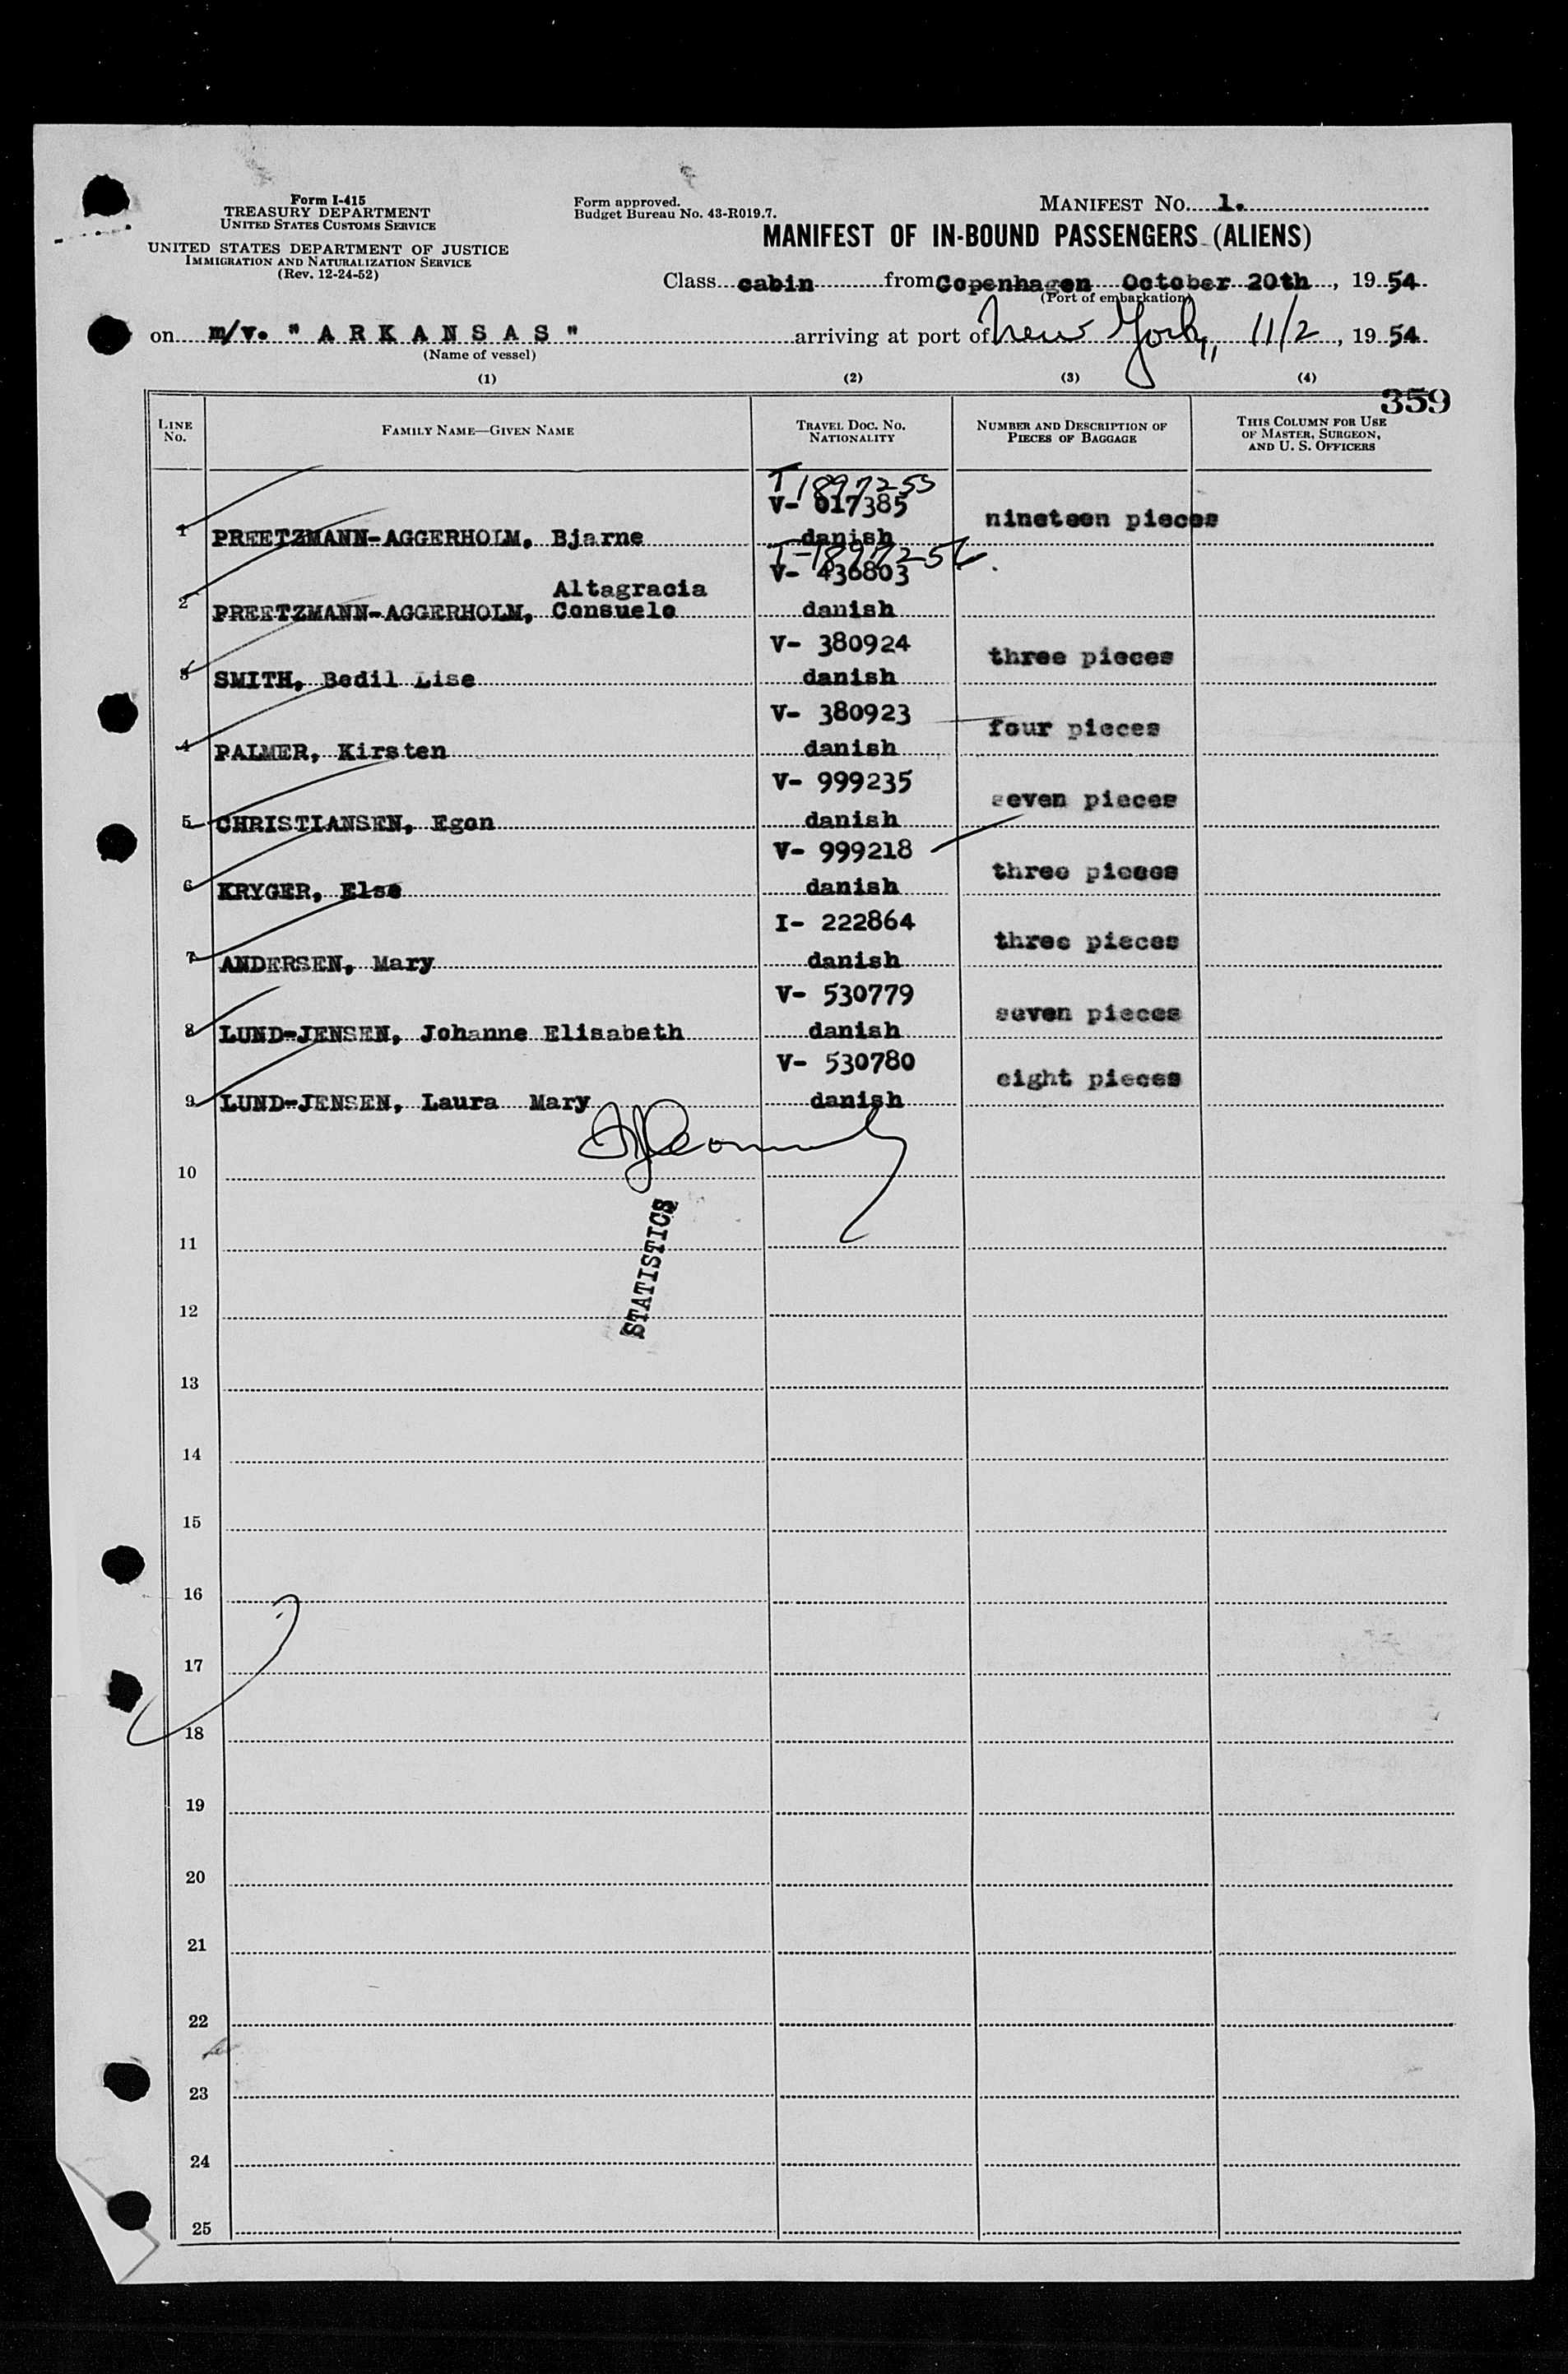 Form I-415
TREASURY DEPARTMENT
UNITED STATES CUSTOMS SERVICE
UNITED STATES DEPARTMENT OF JUSTICE
IMMIGRATION AND NATURALIZATION SERVICE
(Rev. 12-24-52)
Form approved.
Budget Bureau No. 43-R019.7.
MANIFEST No. 1.
MANIFEST OF IN-BOUND PASSENGERS (ALIENS)
Class cabin from Copenhagen October 20th, 19 54
(Port of embarkation)
on m/v. " A R K A N S A S " arriving at port of New York, 11/2, 19 54
(Name of vessel)
(1) (2) (3) (4)
359
LINE No. FAMILY NAME—GIVEN NAME TRAVEL DOC. No. NATIONALITY NUMBER AND DESCRIPTION OF PIECES OF BAGGAGE THIS COLUMN FOR USE OF MASTER, SURGEON, AND U. S. OFFICERS
T 1897255
V- 017385 nineteen pieces
1 PREETZMANN-AGGERHOLM, Bjarne danish
T-1897256
V- 436803
Altagracia
2 PREETZMANN-AGGERHOLM, Consuelo danish
V- 380924 three pieces
3 SMITH, Bodil Lise danish
V- 380923 four pieces
4 PALMER, Kirsten danish
V- 999235 seven pieces
5 CHRISTIANSEN, Egon danish
V- 999218 three pieces
6 KRYGER, Else danish
I- 222864 three pieces
7 ANDERSEN, Mary danish
V- 530779 seven pieces
8 LUND-JENSEN, Johanne Elisabeth danish
V- 530780 eight pieces
9 LUND-JENSEN, Laura Mary danish
10
STATISTICS
11
12
13
14
15
16
17
18
19
20
21
22
23
24
25